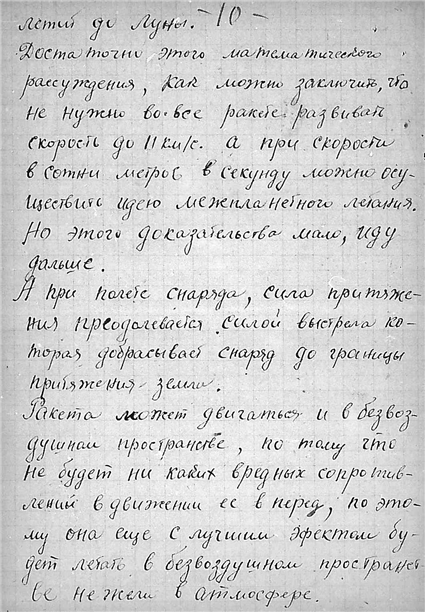 летий до луны. -10-
Достаточно этого математического
рассуждения, как можно заключить, что
не нужно вовсе ракете развивать
скорость до 11 км/с. а при скорости
в сотни метров в секунду можно осу-
ществить идею межпланетного летания.
Но этого доказательства мало, иду
дальше.
А при полете снаряда, сила притяже-
ния преодолевается силой выстрела ко-
торая добрасывает снаряд до границы
притяжения земли.
Ракета может двигаться и в безвоз-
душном пространстве, по тому что
не будет ни каких вредных сопротив-
лений в движении ее в перед, по это-
му она еще с лучшим эфектом бу-
дет летать в безвоздушном пространст-
ве не жели в атмосфере.